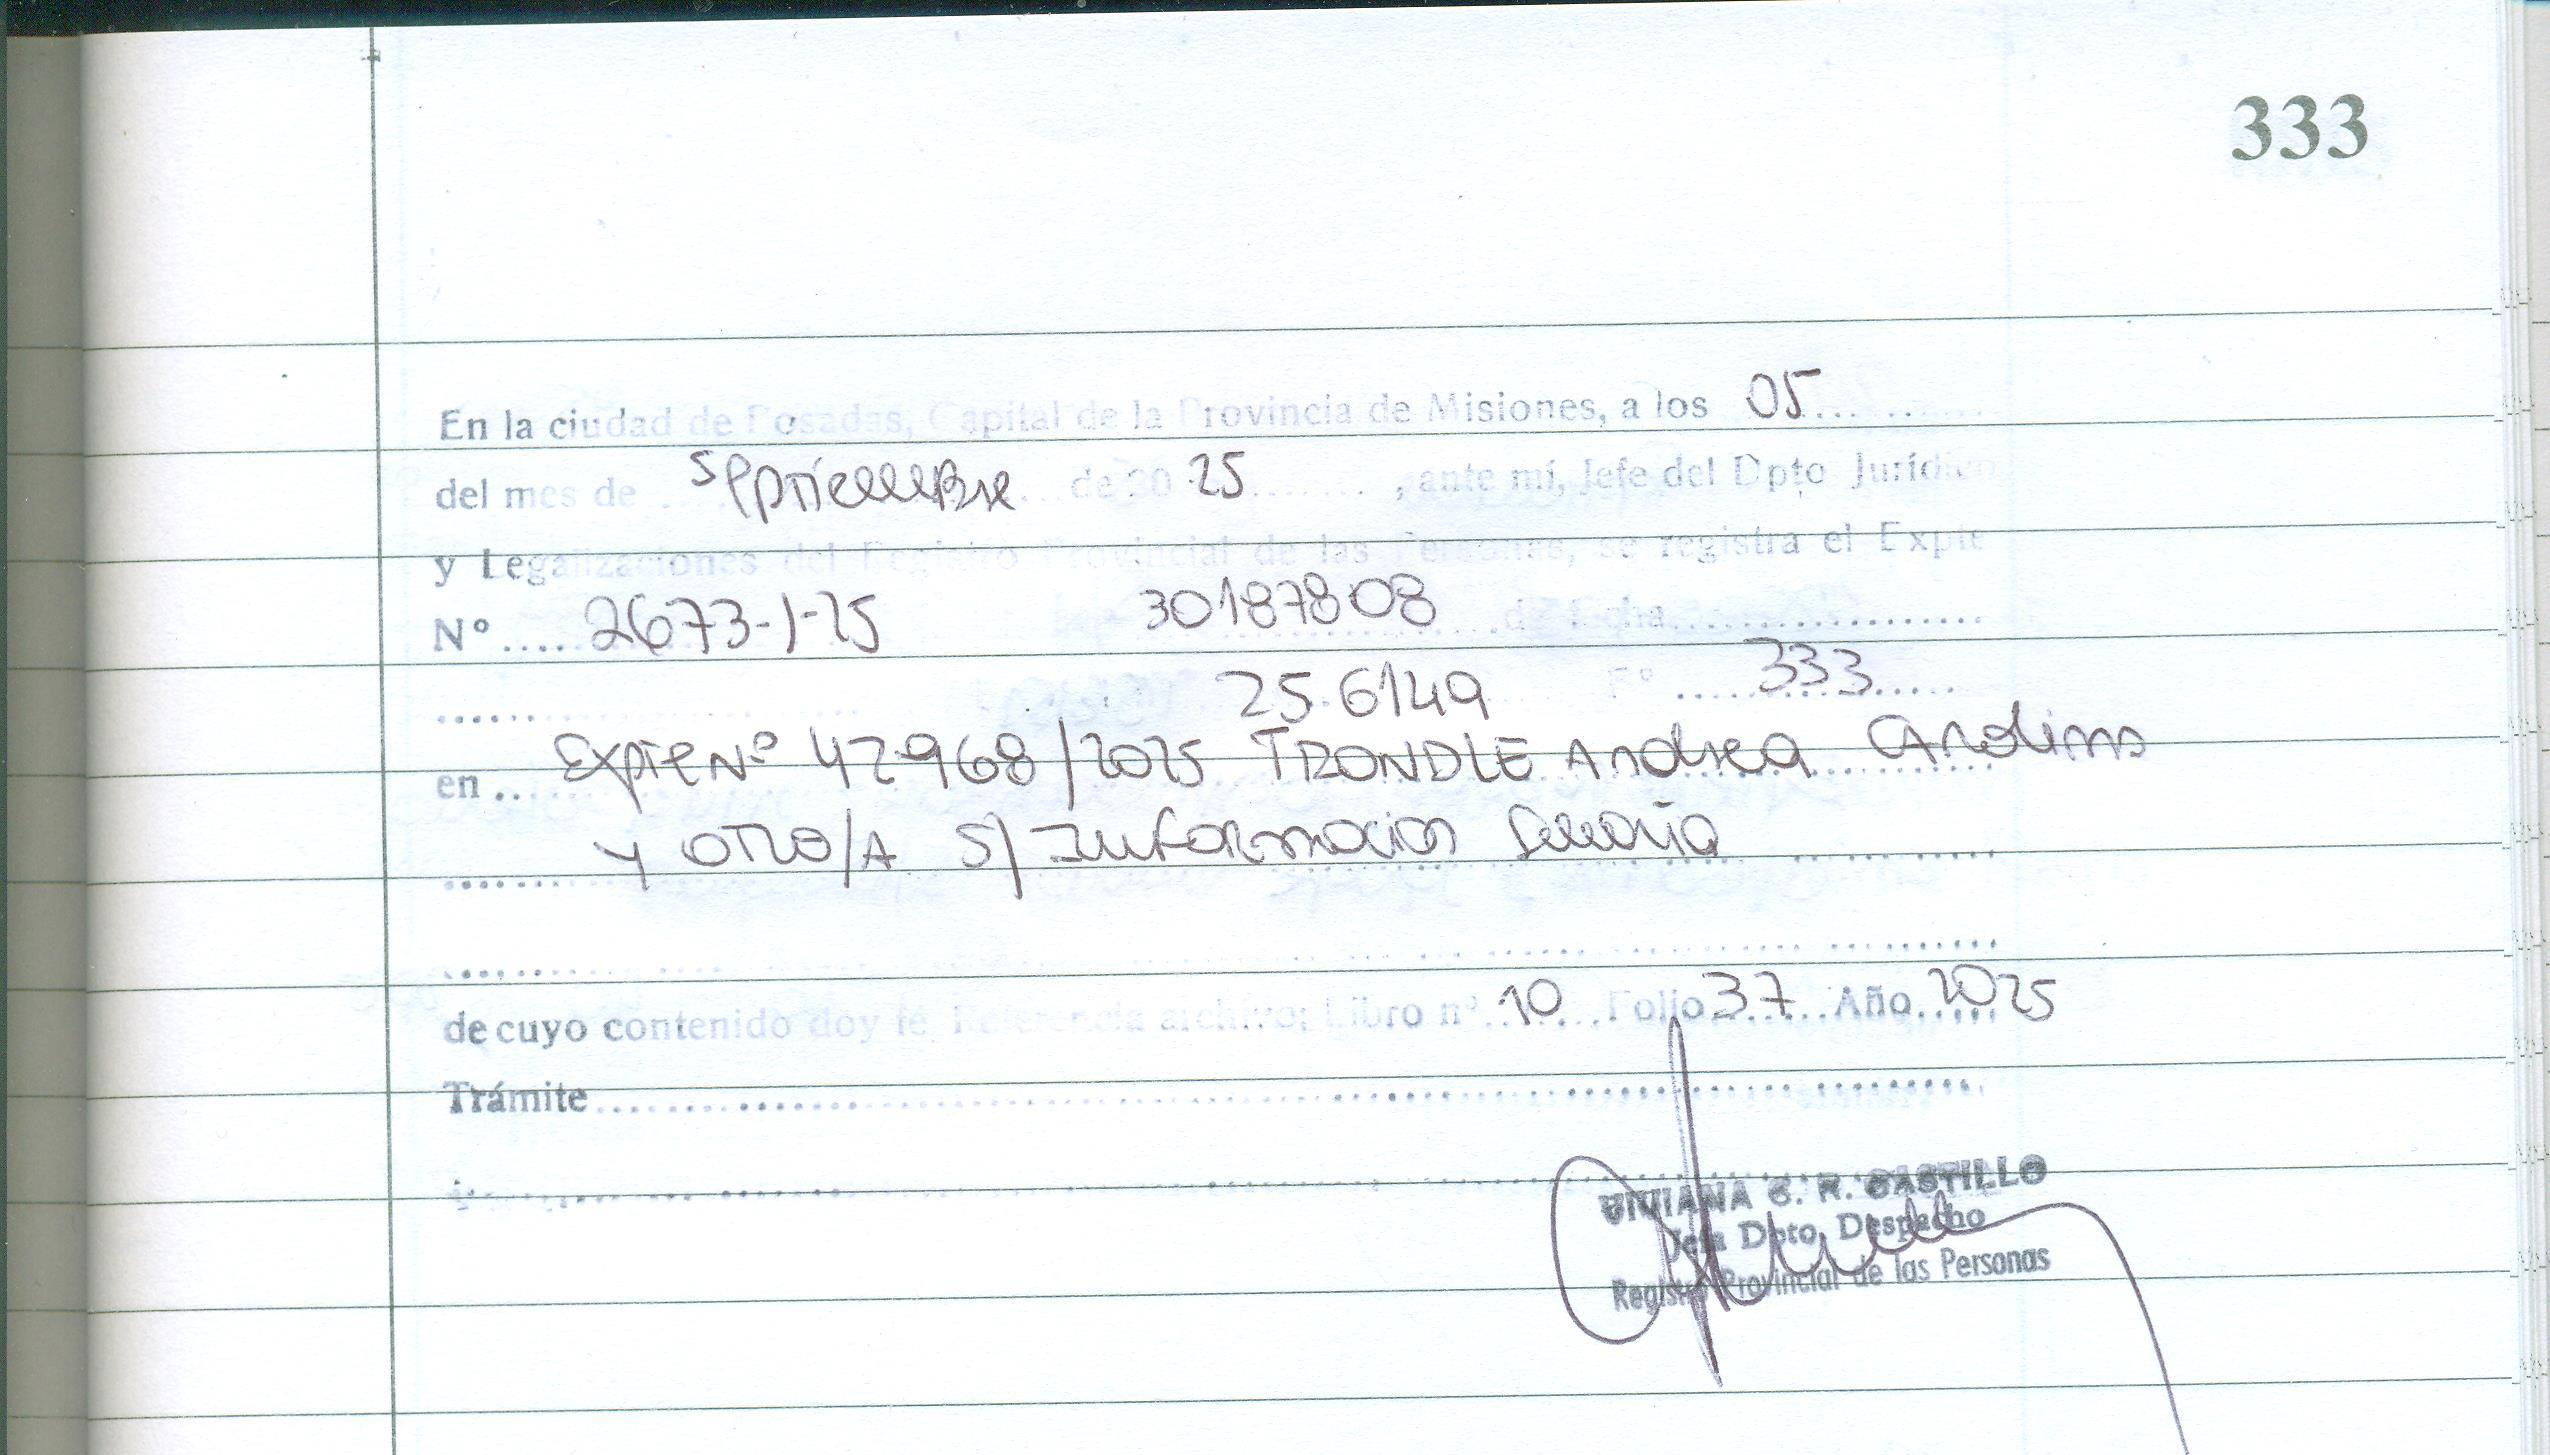 333
En la ciudad de Posadas, Capital de la Provincia de Misiones, a los 05
del mes de septiembre de 20 25, ante mí, Jefe del Dpto Jurídico
y Legalizaciones del Registro Provincial de las Personas, se registra el Expte
N° .... 2673-1-25 30187808 de fecha
256149 F° 333
en .. Expte N° 42968/2025 TRONDLE Andrea Carolina
y otro/A S/ Informacion Sumaria
de cuyo contenido doy fé Referencia archivo: Libro n° 10 Folio 37 Año 2025
Trámite
VIVIANA G. R. CASTILLO
Jefa Dpto. Despacho
Registro Provincial de las Personas